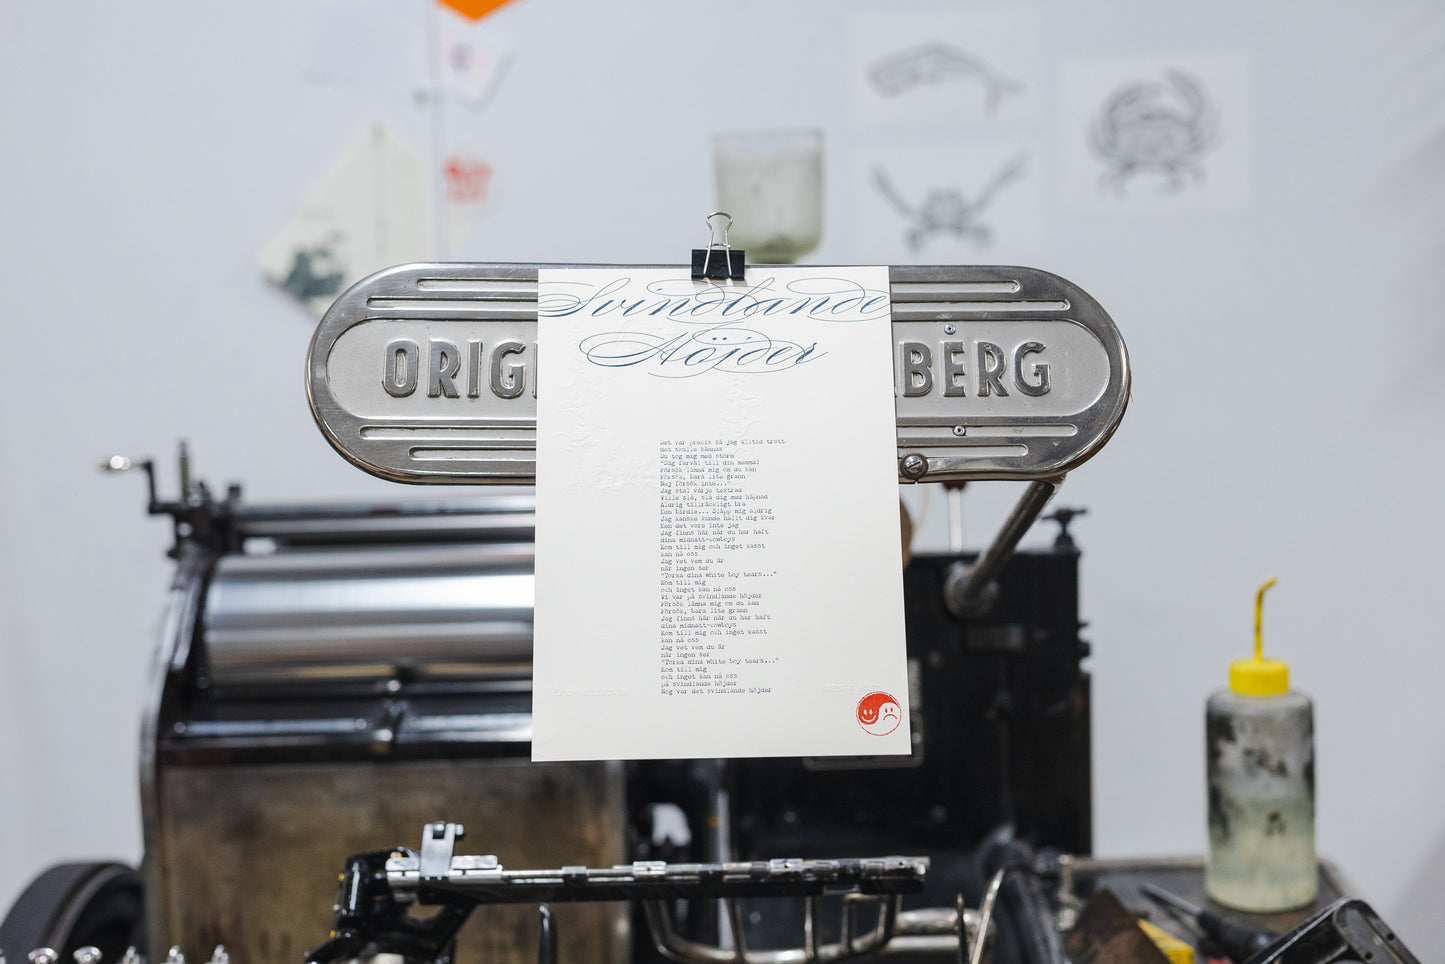 Svindlande
Höjder
ORIGI
BERG
Det var precis så jag alltid trott
det skulle kännas
Du tog mig med storm
"Säg farväl till din mamma!
Försök lämna mig om du kan
Försök, bara lite grann
Nej försök inte..."
Jag stal varje textrad
Ville slå, slå dig med häpnad
Aldrig tillräckligt bra
Men birdie... Släpp mig aldrig
Jag kanske kunde hållt dig kvar
Men det vore inte jag
Jag finns här när du har haft
dina midnatt-cowboys
Kom till mig och inget kasst
kan nå oss
Jag vet vem du är
när ingen ser
"Torka dina white boy tears..."
Kom till mig
och inget kan nå oss
Vi var på svindlande höjder
Försök lämna mig om du kan
Försök, bara lite grann
Jag finns här när du har haft
dina midnatt-cowboys
Kom till mig och inget kasst
kan nå oss
Jag vet vem du är
när ingen ser
"Torka dina white boy tears..."
Kom till mig
och inget kan nå oss
på svindlande höjder
Nog var det svindlande höjder